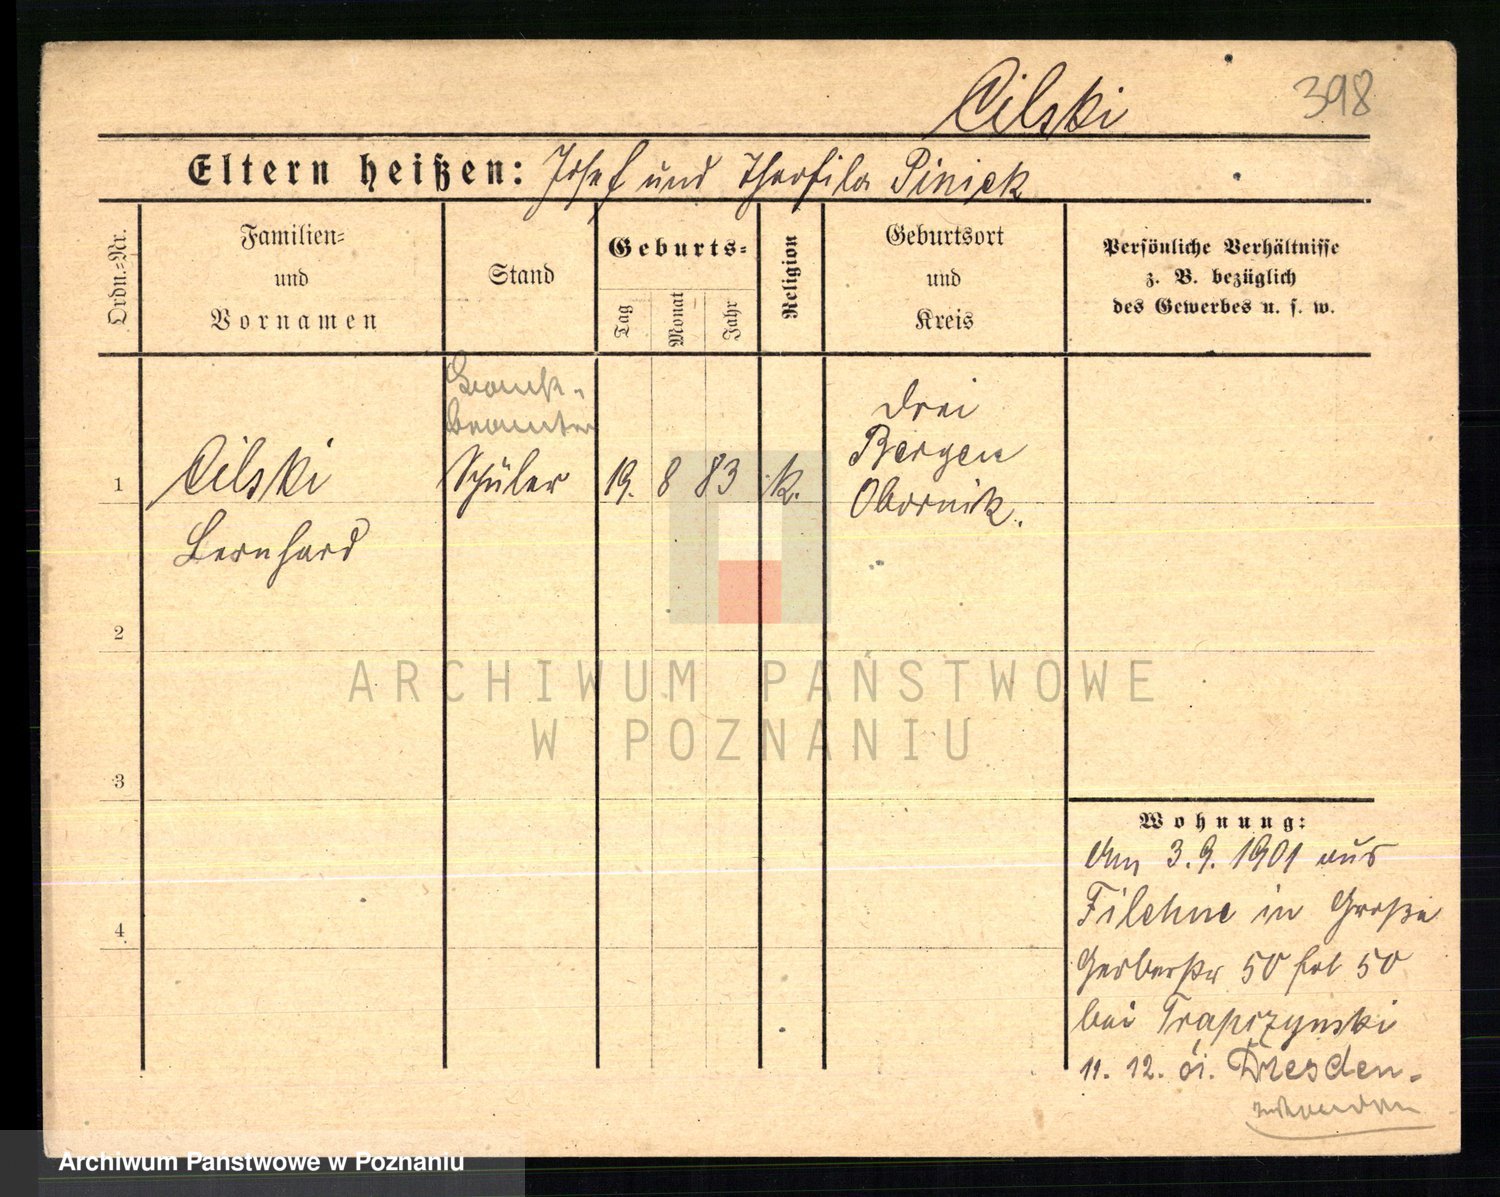 Cilski
398
Eltern heißen: Josef und Theofila Piniek
Ordn.=Nr.
Familien=
und
Vornamen
Stand
Geburts=
Tag
Monat
Jahr
Religion
Geburtsort
und
Kreis
Persönliche Verhältnisse
z. B. bezüglich
des Gewerbes u. s. w.
1
Cilski
Bernhard
Bank-
beamter
Schüler
19.
8
83
k.
Drei
Bergen
Obornik.
2
3
4
Wohnung:
Am 3.9. 1901 aus
Filehne in Große
Gerberstr 50 fol 50
bei Trapczynski
11. 12. 01. Dresden.
ARCHIWUM PAŃSTWOWE
W POZNANIU
Archiwum Państwowe w Poznaniu